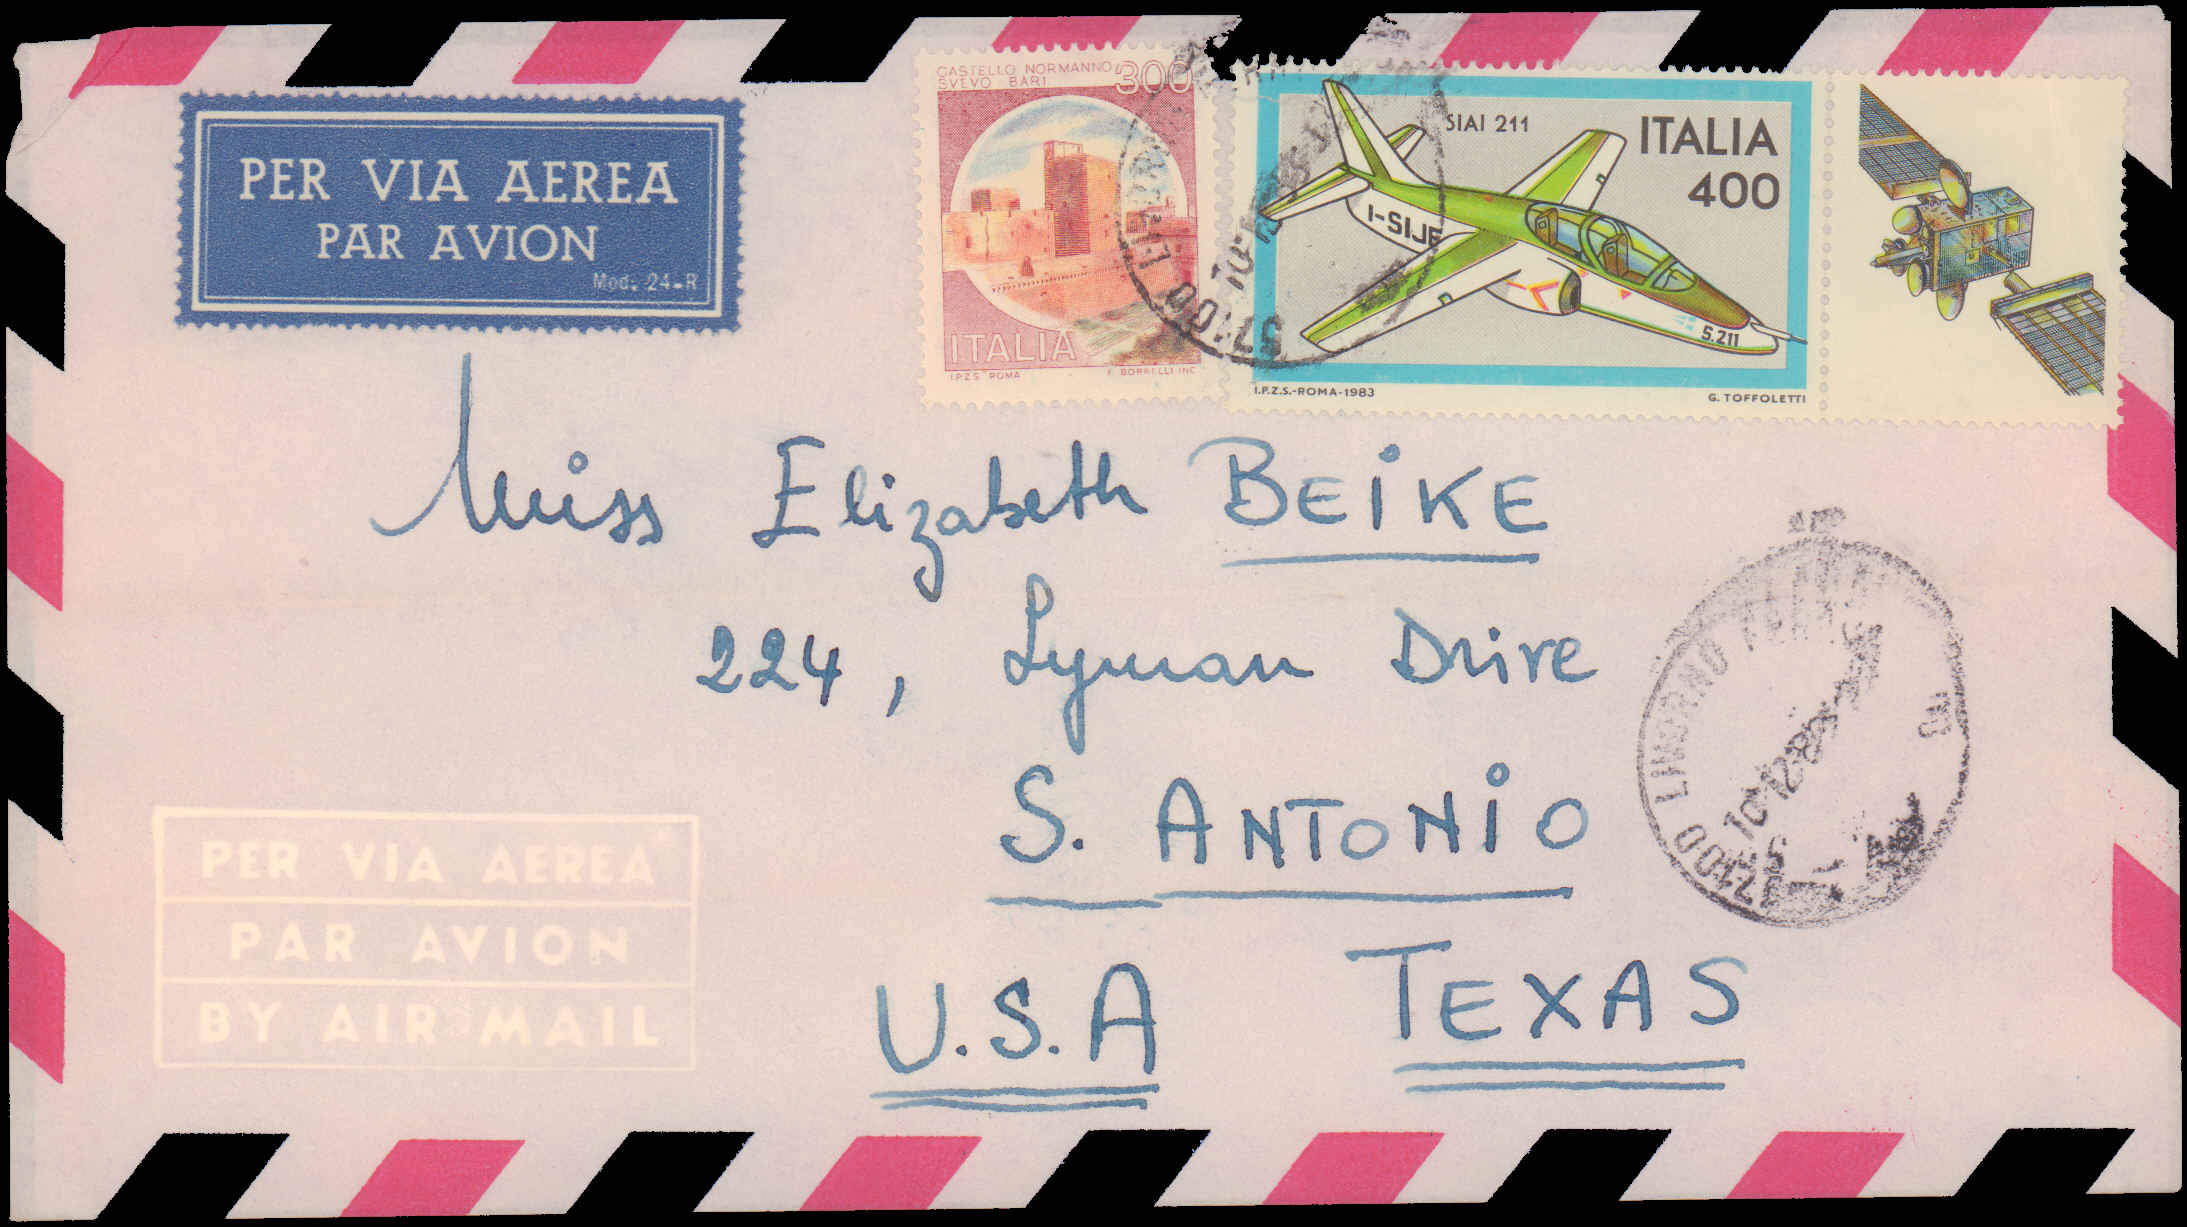 PER VIA AEREA
PAR AVION
Mod. 24-R
CASTELLO NORMANNO
SVEVO BARI
300
ITALIA
I.P.Z.S. ROMA
BORRELLI INC.
SIAI 211
ITALIA
400
I-SIJE
S.211
I.P.Z.S.-ROMA-1983
G. TOFFOLETTI
57100
Miss Elizabeth BEIKE
224, Lyman Drive
S. ANTONIO
U.S.A TEXAS
57100 LIVORNO FERROVIA
10-12-83
PER VIA AEREA
PAR AVION
BY AIR MAIL